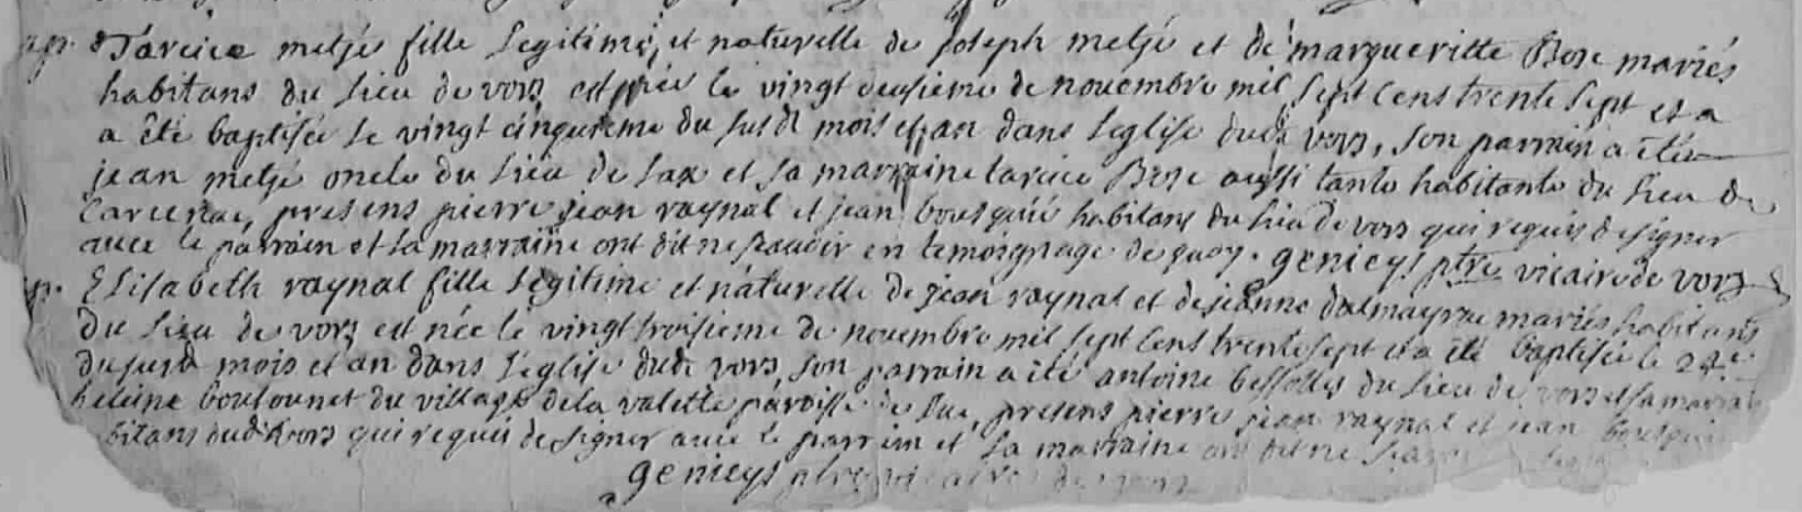 Tarcice metjé fille legitime et naturelle de joseph metjé et de margueritte Bose mariés
habitans du lieu de vors est née le vingt deusieme de novembre mil sept cens trente sept et a
a été baptisée le vingt cinquieme du susdt mois et an dans l'eglise dudt vors, son parrain a été
jean metjé oncle du lieu de lax et sa marraine tarcice Bose aussi tante habitante du lieu de
Carcenac, presens pierre jean raynal et jean bousquié habitans du lieu de vors qui requis de signer
avec le parrain et la marraine ont dit ne scavoir en temoignage de quoy. genieys ptre vicaire de vors
p. Elisabeth raynal fille legitime et naturelle de jean raynal et de jeanne dalmayrac mariés habitants
du lieu de vors est née le vingt troisieme de novembre mil sept cens trente sept et a été baptisée le
du susd mois et an dans l'eglise dudt vors, son parrain a été antoine bessolles du lieu de vors et sa marrai
heleine boutounet du village de la valette paroisse de presens pierre jean raynal et jean bousqui
bitans dudt vors qui requis de signer avec le parrein et la marraine ont dit ne
genieys ptre vicaire de vors